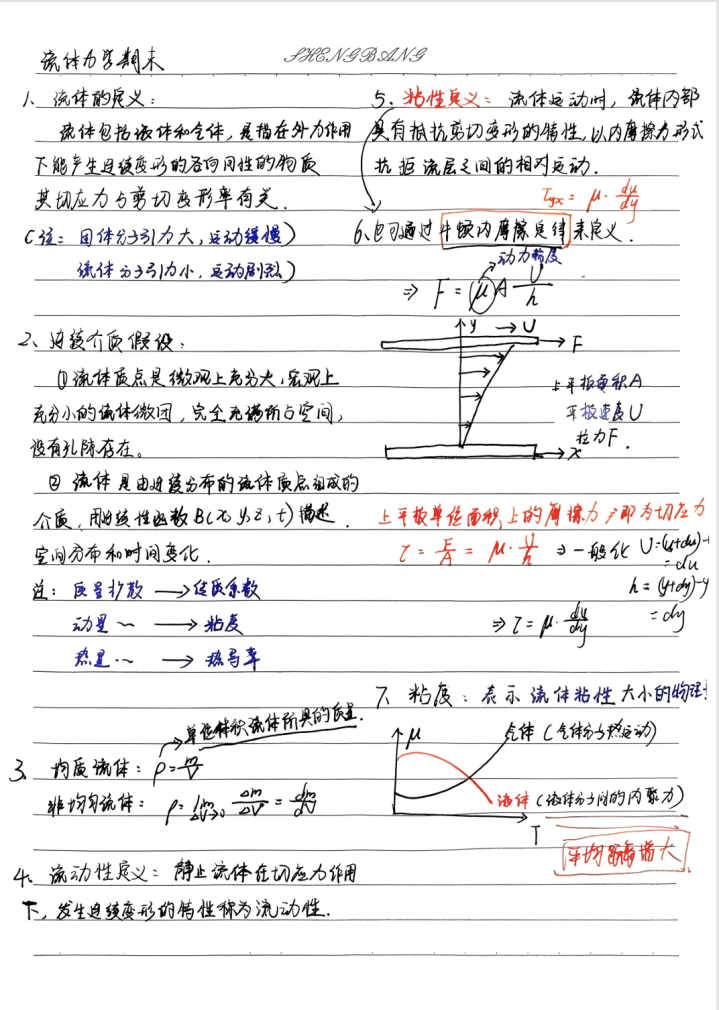 流体力学期末
SHENGBANG
1、流体的定义：
流体包括液体和气体，是指在外力作用
下能产生连续变形的各向同性的物质
其切应力与剪切变形率有关.
（注：固体分子引力大，运动缓慢）
流体分子引力小，运动剧烈）
2、连续介质假设：
①流体质点是微观上充分大，宏观上
充分小的流体微团，完全充满所占空间，
没有孔隙存在。
② 流体是由连续分布的流体质点组成的
介质，用连续性函数B(x,y,z,t)描述
空间分布和时间变化.
注：质量扩散 → 传质系数
动量 ~ → 粘度
热量 ~ → 热导率
单位体积流体所具的质量.
3、均质流体：ρ=m/V
非均匀流体：ρ= lim ΔV→0 Δm/ΔV = dm/dV
4、流动性定义：静止流体在切应力作用
下，发生连续变形的特性称为流动性.
5、粘性定义：流体运动时，流体内部
具有抵抗剪切变形的特性，以内摩擦力形式
抗拒流层之间的相对运动.
τyx = μ·du/dy
6、也可通过牛顿内摩擦定律来定义.
动力粘度
⇒ F = μA U/h
y → U
F
上平板面积A
平板速度U
拉力F.
x
上平板单位面积上的摩擦力τ即为切应力
τ = F/A = μ·U/h ⇒ 一般化 U=(u+du)-u
= du
h = (y+dy)-y
= dy
⇒ τ = μ·du/dy
7、粘度：表示流体粘性大小的物理
μ
气体（气体分子热运动）
液体（液体分子间的内聚力）
T
平均距离增大